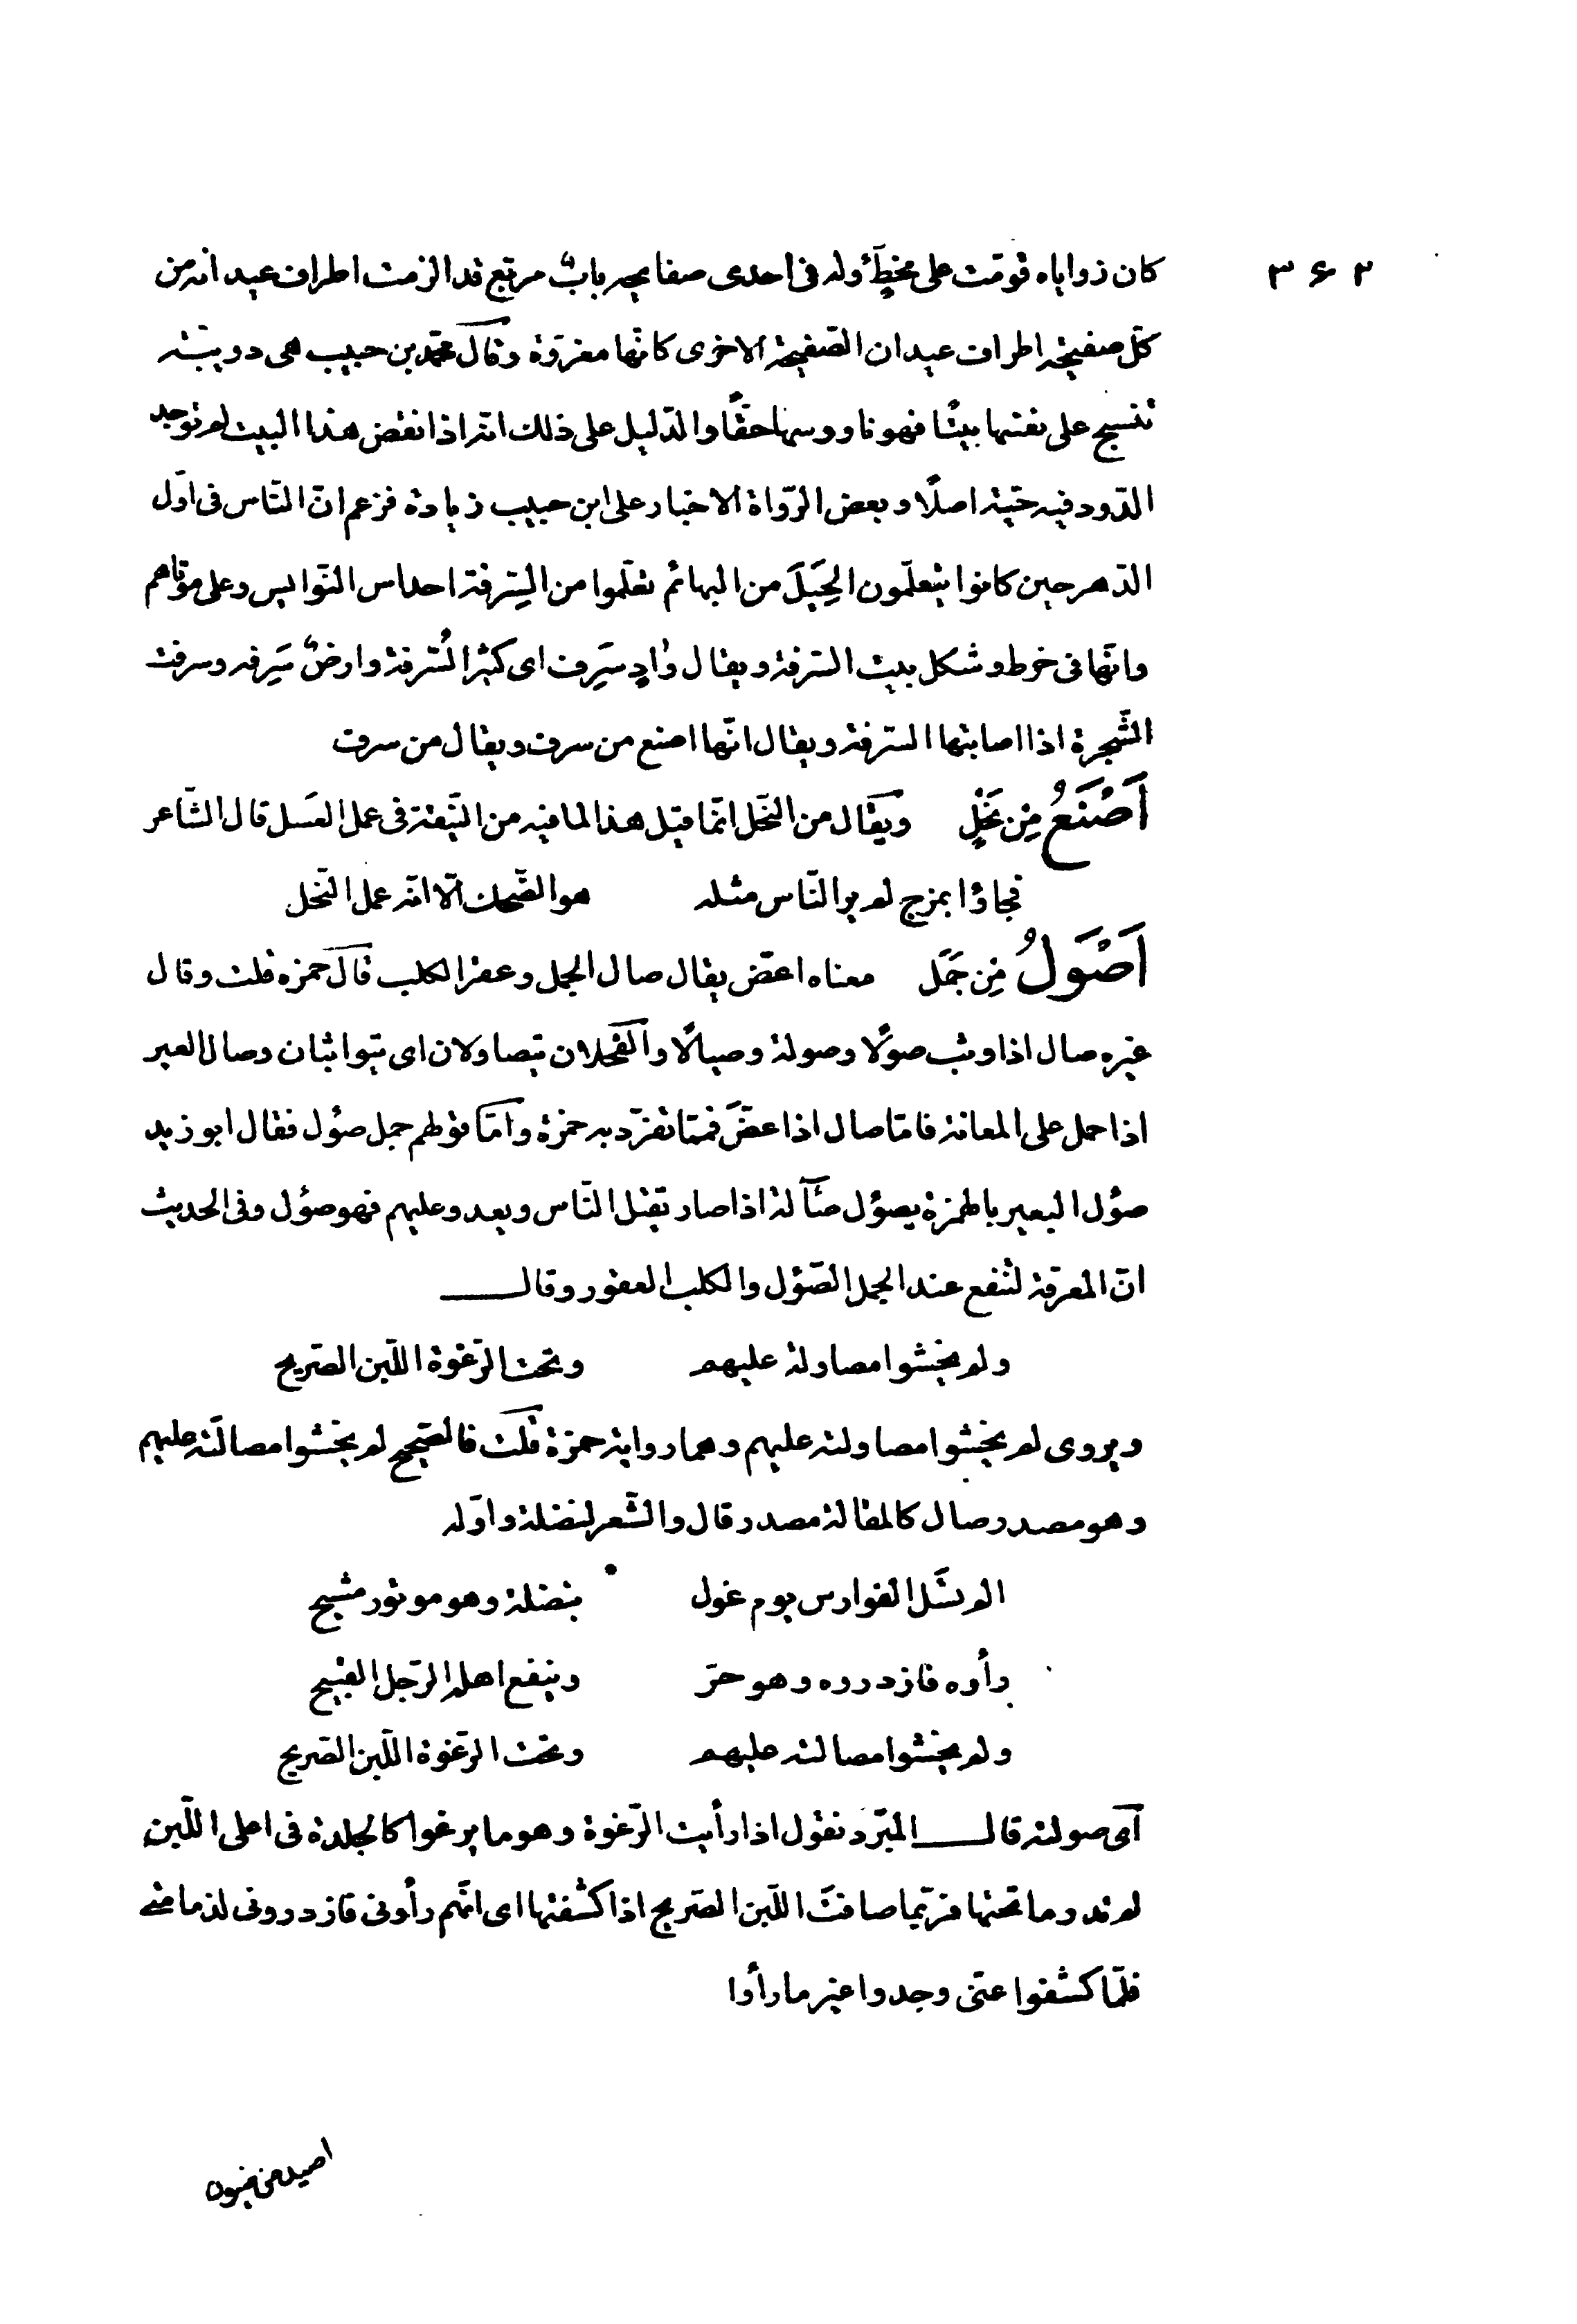 ٣٤٢
كان زواياه قوّمت على مخطّ وله فى احدى صفايحه بابٌ مربّع قد الزمت اطراف عيدانه من
كلّ صفيحة اطراف عيدان الصّفيحة الاخرى كانّها مغروّة وقال محمّد بن حبيب هى دويبّة
تنسج على نفسها بيتًا فهو ناووسها حقًّا والدّليل على ذلك انّه اذا نقض هذا البيت لم توجد
الدّود فيه حيّة اصلًا وبعض الرّواة الاخبار على ابن حبيب زيادة فزعم انّ النّاس فى اوّل
الدّهر حين كانوا يتعلّمون الحِيَلَ من البهائم تعلّموا من السِرفة احداس النّوايس وعلى موتاهم
وانّها فى خرط وشكل بيت السّرفة ويقال وادٍ سَرِف اى كثير السُّرفة وارضٌ سَرِفة وسرفت
الشّجرة اذا اصابتها السّرفة ويقال انّها اصنع من سرف ويقال من سرت
اَصْنَعُ مِن نَحْلٍ ويقال من النّحل انّما قيل هذا لما فيه من النّيقة فى عمل العَسل قال الشّاعر
فجاؤا بمزج لم ير النّاس مثله هو الضّحك الّا انّه عمل النّحل
اَصْوَلُ مِن جَمَل معناه اعضّ يقال صال الجمل وعقر الكلب قال حمزه قلت وقال
غيره صال اذا وثب صولًا وصولة وصيالًا والفحلان يتصاولان اى يتواثبان وصال العير
اذا حمل على العانة فامّا صال اذا عضّ فممّا تفرّد به حمزة وامّا قولهم جمل صؤل فقال ابو زيد
صؤل البعير بالهمزة يصؤل صآلة اذا صار يقتل النّاس ويعدو عليهم فهو صؤل وفى الحديث
انّ المعرفة لتنفع عند الجمل الصّؤل والكلب العقور وقال
ولم يخشوا مصاولة عليهم وتحت الرّغوة اللّبن الصّريح
ويروى لم يخشوا مصاولته عليهم وهما رواية حمزة قلت فالصّحيح لم يخشوا مصالته عليهم
وهو مصدر صال كالمقالة مصدر قال والشّعر لنضلة واوّله
الم تسَل الفوارس يوم غول بنضلة وهو موتور مشيح
رأوه فازدروه وهو حرّ وينفع اهله الرّجل القبيح
ولم يخشوا مصالته عليهم وتحت الرّغوة اللّبن الصّريح
اى صولته قال المبرّد تقول اذا رأيت الرّغوة وهو ما يرغوا كالجلدة فى اعلى اللّبن
لم تدر ما تحتها فربّما صادفت اللّبن الصّريح اذا كشفتها اى انّهم رأونى فازدرونى لدمامتى
فلمّا كشفوا عنّى وجدوا غير ما رأوا